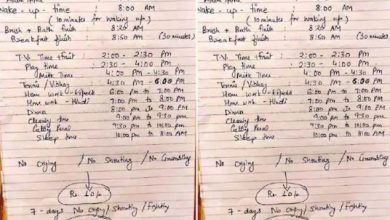 Wake - up - time : 8:00 AM
(10 minutes for waking up)
Brush + Bath finish 8:20 AM
Breakfast finish 8:50 AM (30 minutes)
TV Time + fruit 2:00 - 2:30 PM
Play Time 2:30 - 4:00 PM
Milk Time 4:00 PM - 4:30 PM
Tennis / 4:30 PM - 6.00 PM
Home work - 6:00 PM to 7:00 PM
Home work - Hindi 7.00 PM to 8:00 PM
Dinner 8:00 PM to 9:00 PM
Cleaning time 9:00 PM to 9:30 PM
9:30 PM to 10:00 PM
Sleep time 10 PM to 8:00 AM
No Crying / No Shouting / No
Rs. 10/-
7 - days No Crying / Shouting / Fighting
Wake - up - time : 8:00 AM
(10 minutes for waking up)
Brush + Bath finish 8:20 AM
Breakfast finish 8:50 AM (30 minutes)
TV Time + fruit 2:00 - 2:30 PM
Play Time 2:30 - 4:00 PM
Milk Time 4:00 PM - 4:30 PM
Tennis / 4:30 PM - 6.00 PM
Home work - 6:00 PM to 7:00 PM
Home work - Hindi 7.00 PM to 8:00 PM
Dinner 8:00 PM to 9:00 PM
Cleaning time 9:00 PM to 9:30 PM
9:30 PM to 10:00 PM
Sleep time 10 PM to 8:00 AM
No Crying / No Shouting / No
Rs. 10/-
7 - days No Crying / Shouting / Fighting